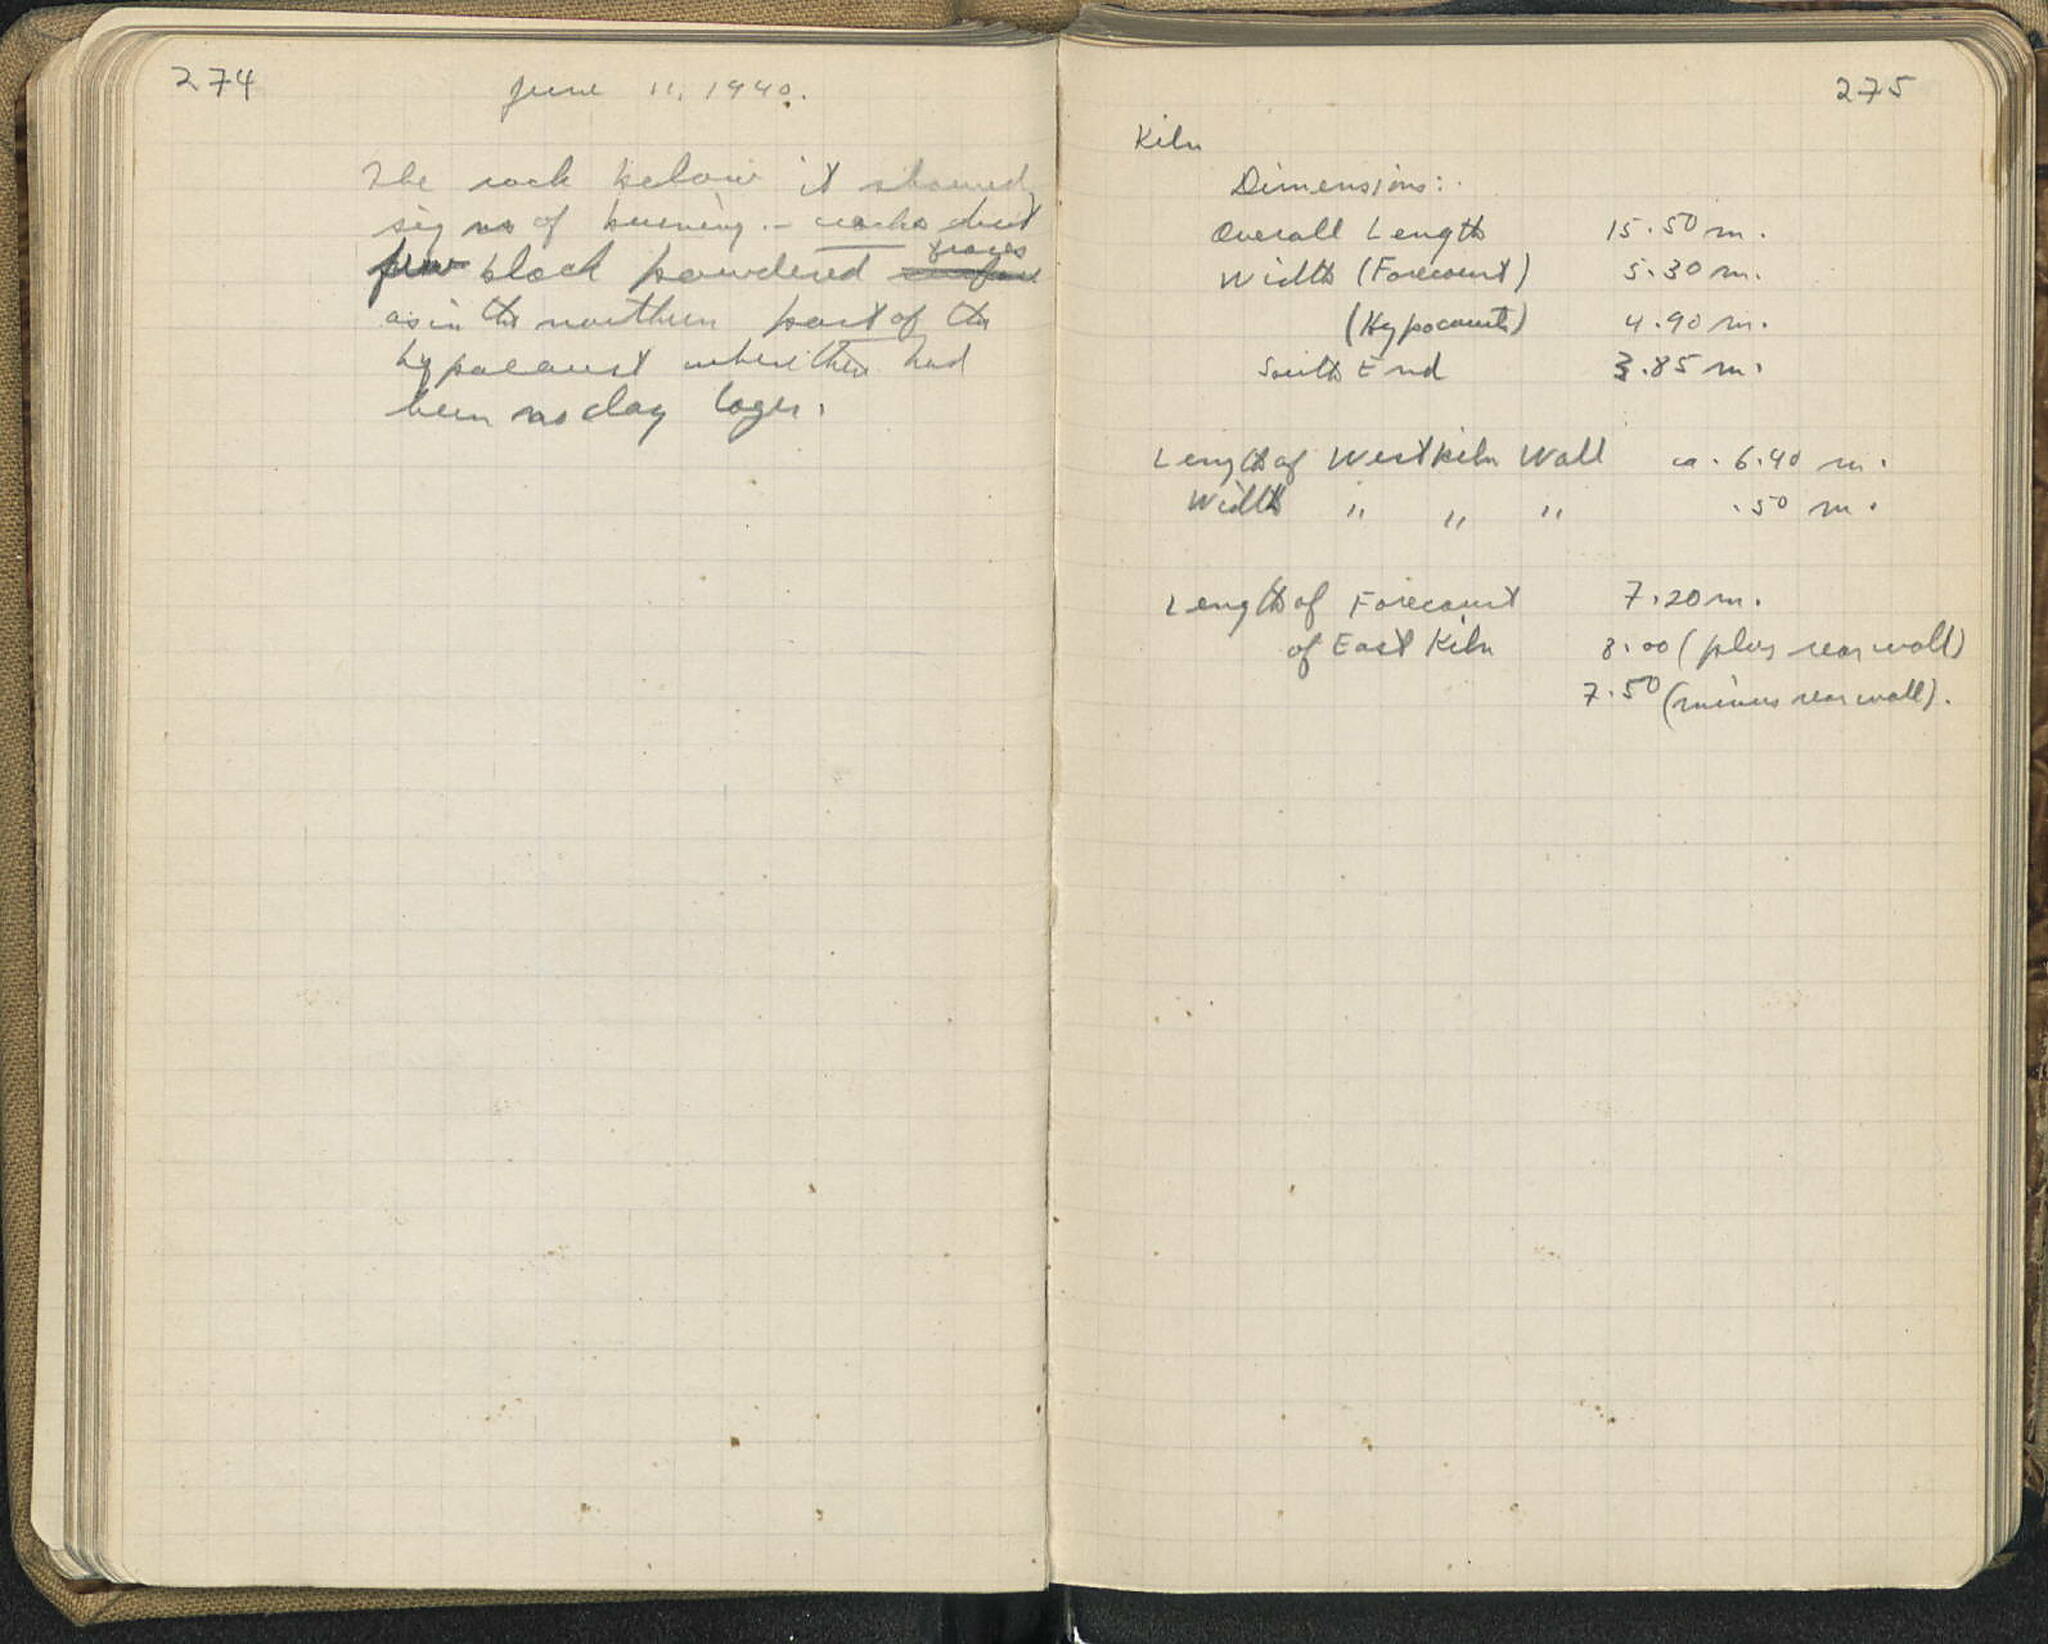 274
June 11, 1940.
The rock below it showed
signs of burning. - cracks but
few black powdered surface traces
as in the northern part of the
hypocaust where there had
been no clay layer.
275
Kiln
Dimensions:
Overall Length 15.50 m.
Width (Forecourt) 5.30 m.
(Hypocaust) 4.90 m.
South End 3.85 m.
Length of West Kiln Wall ca. 6.40 m.
Width " " " .50 m.
Length of Forecourt 7.20 m.
of East Kiln 8.00 (plus rear wall)
7.50 (minus rear wall).